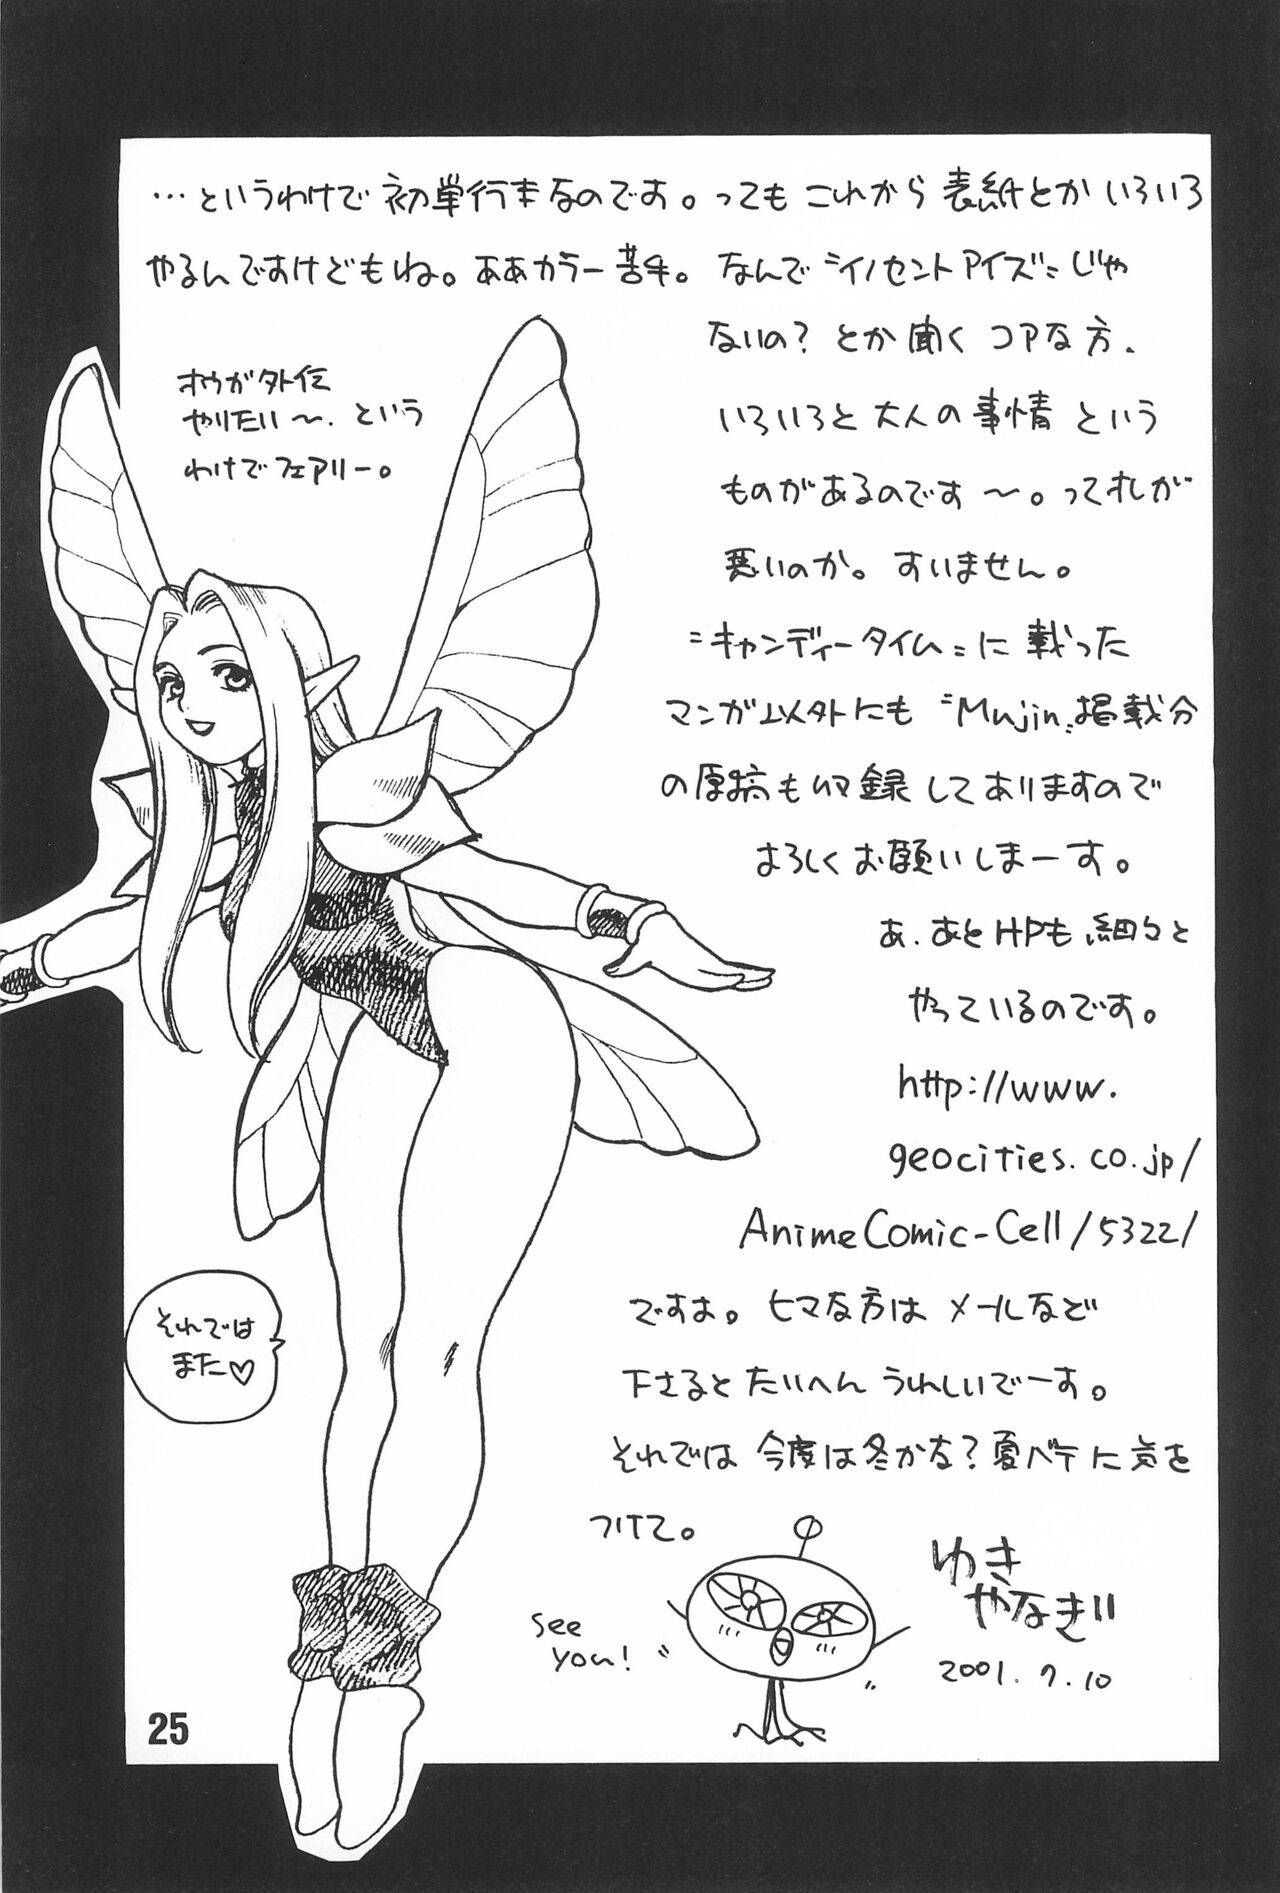 …というわけで初単行本なのです。ってもこれから表紙とかいろいろ
やるんですけどもね。ああカラー苦手。なんで〝イノセントアイズ〟じゃ
ないの？とか聞くコアな方、
いろいろと大人の事情という
ものがあるのです〜。ってオレが
悪いのか。すいません。
〝キャンディータイム〟に載った
マンガ以外にも〝Mujin〟掲載分
の原稿も収録してありますので
よろしくお願いしまーす。
あ、あとHPも細々と
やっているのです。
http://www.
geocities.co.jp/
AnimeComic-Cell/5322/
ですよ。ヒマな方はメールなど
下さるとたいへんうれしいでーす。
それでは今度は冬かな？夏バテに気を
つけて。
オウガ外伝
やりたい〜、という
わけでフェアリー。
それでは
また♡
see
you!
ゆき
やなぎ
2001.7.10
25